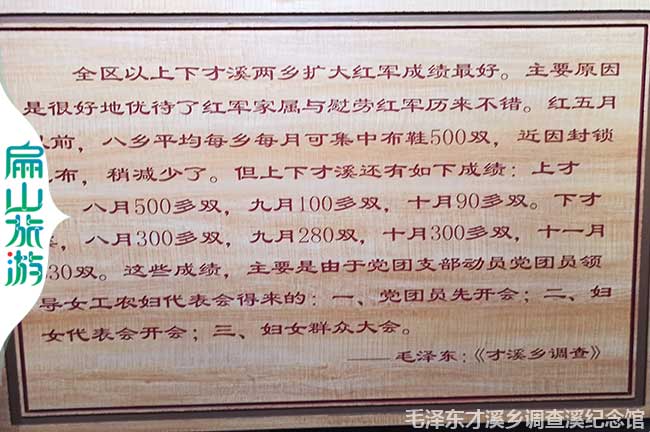 全区以上下才溪两乡扩大红军成绩最好。主要原因
是很好地优待了红军家属与慰劳红军历来不错。红五月
前，八乡平均每乡每月可集中布鞋500双，近因封锁
布，稍减少了。但上下才溪还有如下成绩：上才
八月500多双，九月100多双，十月90多双。下才
，八月300多双，九月280双，十月300多双，十一月
30双。这些成绩，主要是由于党团支部动员党团员领
导女工农妇代表会得来的：一、党团员先开会；二、妇
女代表会开会；三、妇女群众大会。
——毛泽东：《才溪乡调查》
扁山旅游
毛泽东才溪乡调查溪纪念馆